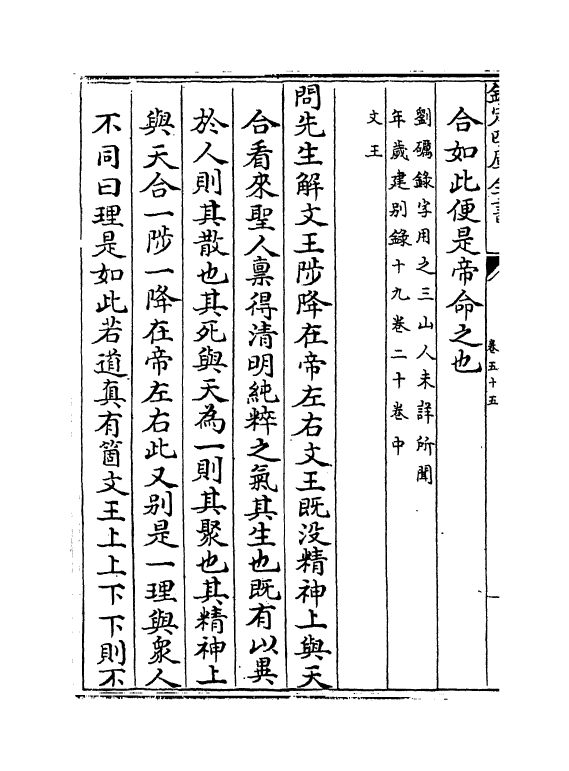 合如此便是帝命之也
劉礪錄字用之三山人未詳所聞
年歲建别錄十九卷二十卷中
文王
問先生解文王陟降在帝左右文王既没精神上與天
合看來聖人稟得清明純粹之氣其生也既有以異
於人則其散也其死與天為一則其聚也其精神上
與天合一陟一降在帝左右此又别是一理與衆人
不同曰理是如此若道真有箇文王上上下下則不
卷五十五